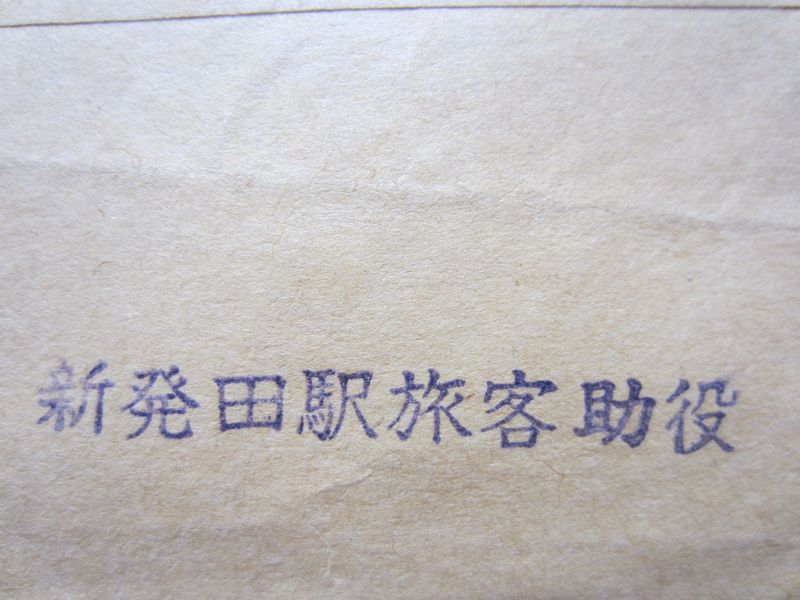 新発田駅旅客助役